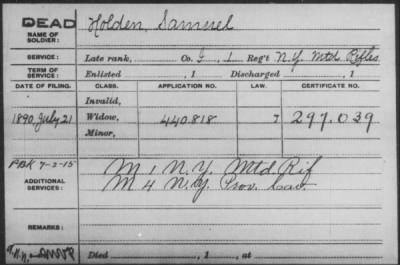 DEAD
NAME OF SOLDIER: Holden, Samuel
SERVICE: Late rank, Co. G, 1 Reg't N.Y. Mtd. Rifles
TERM OF SERVICE: Enlisted , 1 Discharged , 1
DATE OF FILING. CLASS. APPLICATION NO. LAW. CERTIFICATE NO.
Invalid,
1890, July 21 Widow, 440.818 7 297.039
Minor,
PBK 7-2-15
ADDITIONAL SERVICES: M 1 N.Y. Mtd. Rif
M 4 N.Y. Prov. Cav.
REMARKS:
Died , 1 , at